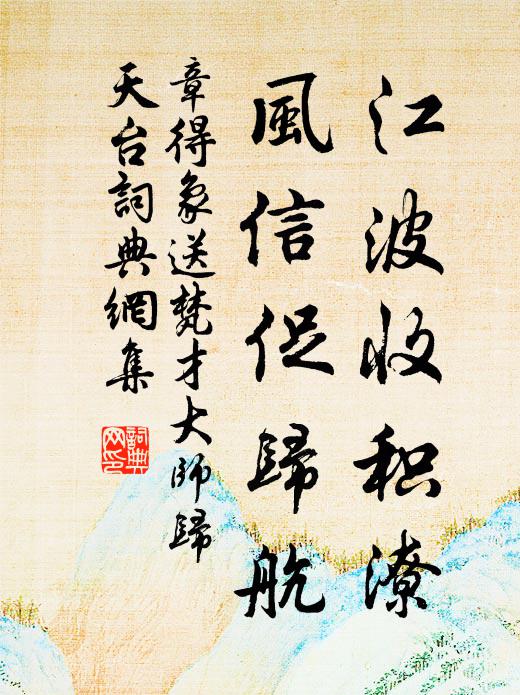 江波收积潦
風信促歸航
章得象送梵才大师歸
天台詞典網集
詞典網印